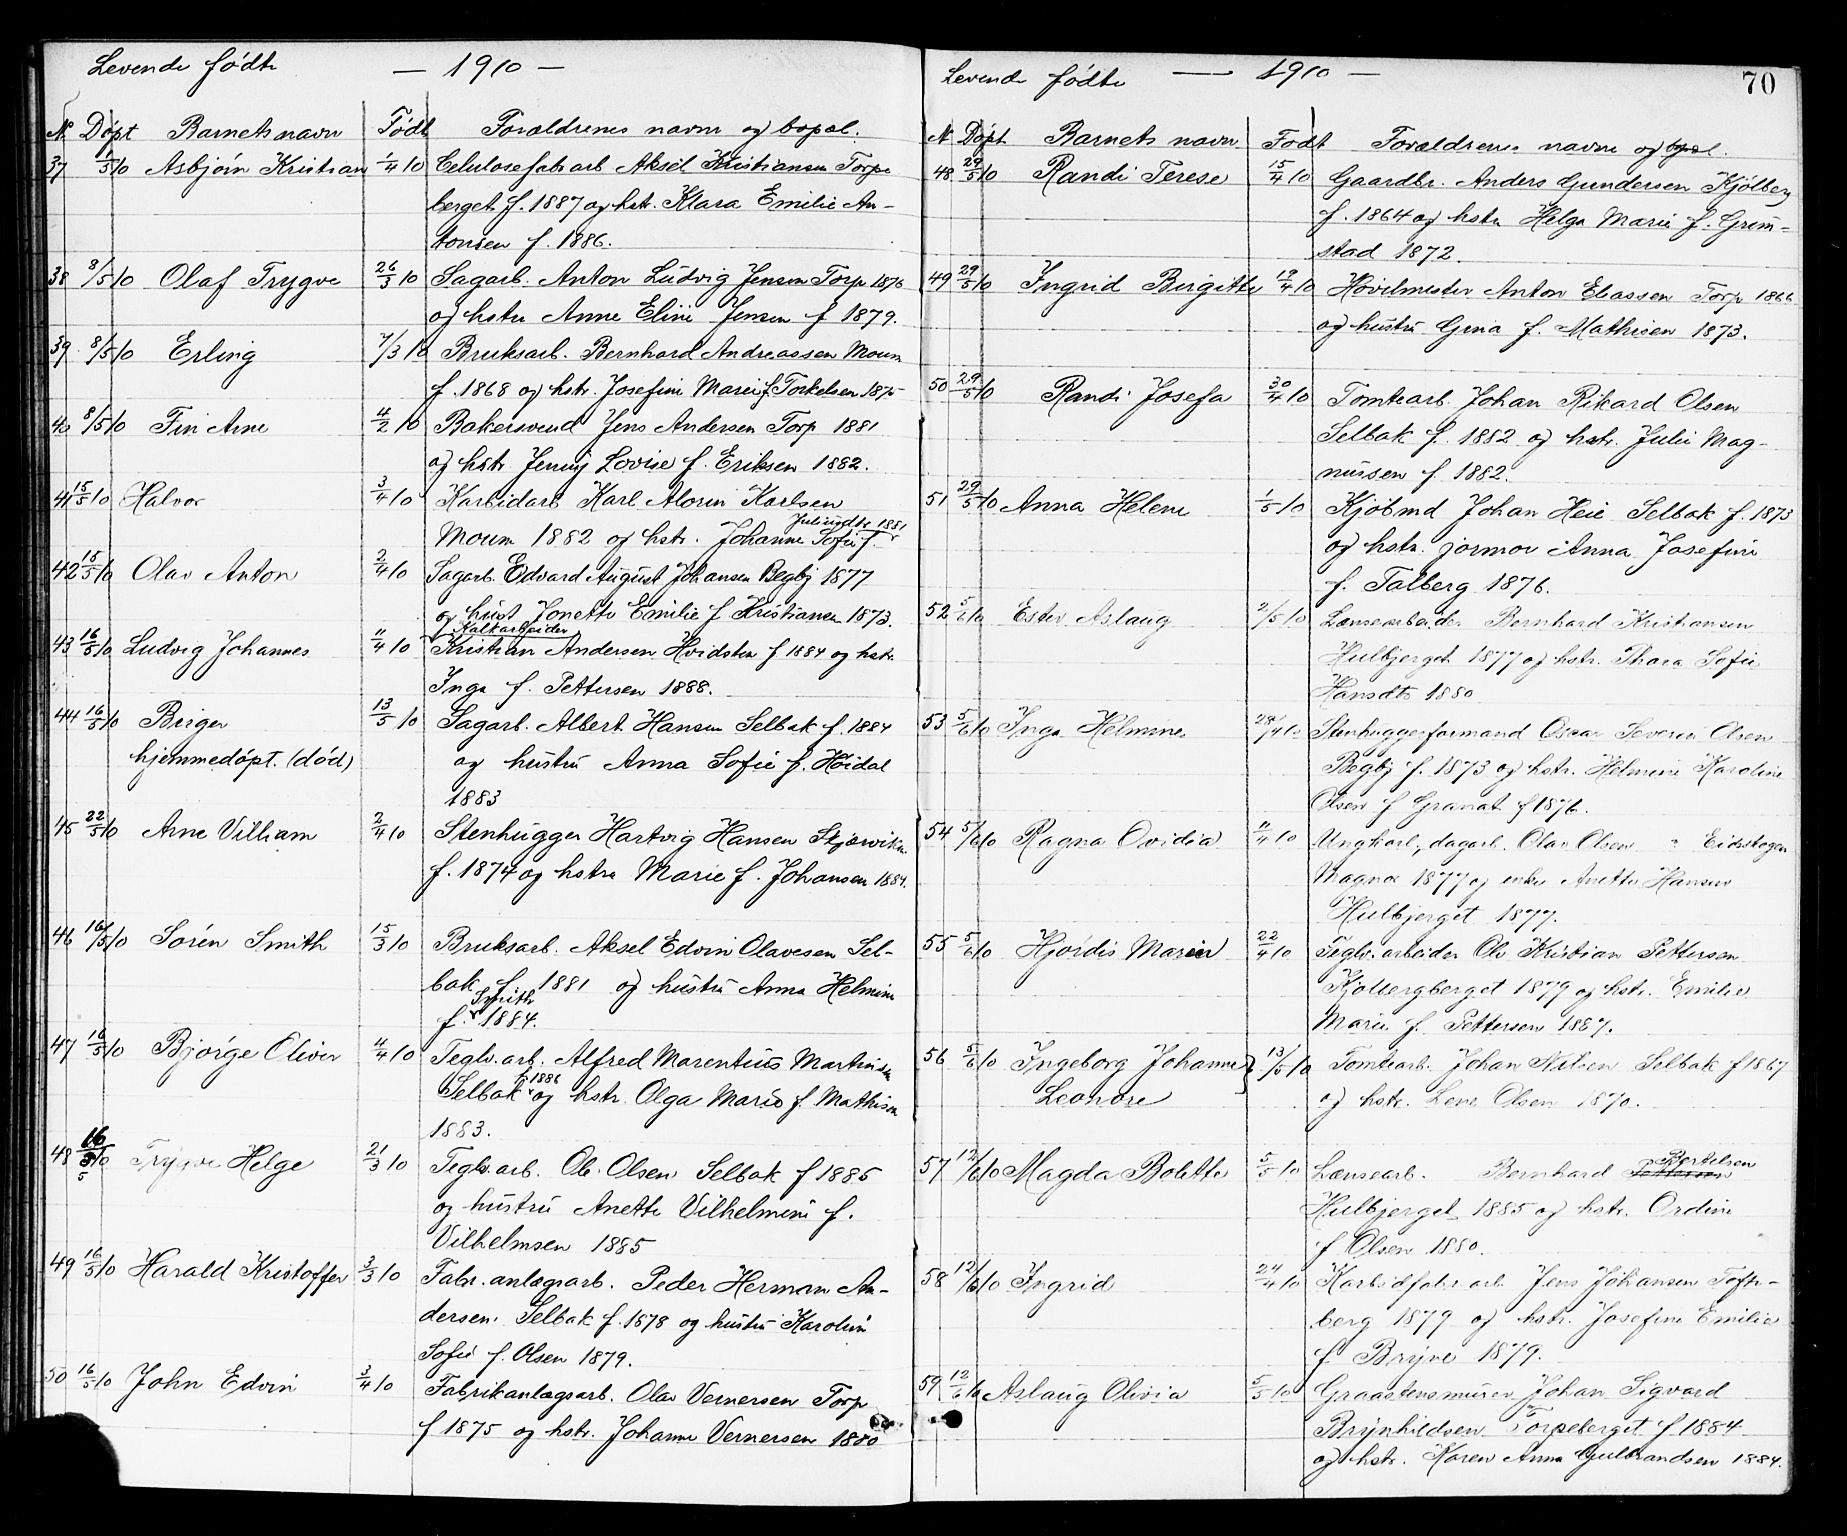 Levende fødte — 1910 —
N. Døpt Barnets navn Født Forældrenes navne og bopæl.
37 1/5 10 Asbjørn Kristian 1/4 10 Celulosefabr.arb Aksel Kristiansen Torpe
berget f. 1887 og hstr. Klara Emilie An-
tonsen f. 1886.
38 8/5 10 Olaf Trygve 26/3 10 Sagarb. Anton Ludvig Jensen Torp 1876
og hstru Anne Eline Jensen f 1879.
39 8/5 10 Erling 7/3 10 Bruksarb. Bernhard Andreassen Moum
f. 1868 og hstr. Josefine Marie f. Torkelsen 1875
40 8/5 10 Fin Arne 4/2 10 Bakersvend Jens Andersen Torp 1881
og hstr. Jenny Lovise f. Eriksen 1882.
41 15/5 10 Halvor 3/4 10 Karbidarb Karl Alorin Karlsen
Moum 1882 og hstr. Johanne Sofie f. Juliusdtr 1881
42 15/5 10 Olav Anton 2/4 10 Sagarb. Edvard August Johansen Begby 1877
og hust Jonette Emilie f Kristiansen 1873.
43 16/5 10 Ludvig Johannes 11/4 10 Kalkarbeider Kristian Andersen Hvidsten f 1884 og hstr.
Inga f. Pettersen 1888.
44 16/5 10 Birger 13/5 10 Sagarb. Albert Hansen Selbak f. 1884
hjemmedøpt. (død) og hustru Anna Sofie f. Høidal
1883
45 22/5 10 Arne Villiam 2/4 10 Stenhugger Hartvig Hansen Skjærviken
f. 1874 og hstru Marie f. Johansen 1884.
46 16/5 10 Søren Smith 15/3 10 Bruksarb. Aksel Edvin Olavesen Sel-
bak f. 1881 og hustru Anna Helmine
f. Smith 1884.
47 16/5 10 Bjørge Oliver 11/4 10 Teglv.arb. Alfred Marentius Martinsen
Selbak f 1886 og hstr. Olga Marie f. Mathisen
1883.
48 16/5 10 Trygve Helge 21/3 10 Teglv.arb. Ole Olsen Selbak f 1885
og hustru Anette Vilhelmine f.
Vilhelmsen 1885
49 16/5 10 Harald Kristoffer 3/3 10 Fabr.anlægsarb. Peder Herman An-
dersen. Selbak f. 1878 og hustru Karoline
Sofie f. Olsen 1879.
50 16/5 10 John Edvin 3/4 10 Fabrikanlægsarb. Olav Vernersen Torp
f 1875 og hstr. Johanne Vernersen 1880
Levende fødte — 1910 — 70
N Døpt Barnets navn Født Forældrenes navne og bopæl.
48 29/5 10 Randi Terese 15/4 10 Gaardbr. Anders Gundersen Kjølberg
f. 1864 og hstru Helga Marie f. Grim-
stad 1872.
49 29/5 10 Ingrid Birgitte 19/4 10 Høvelmester Anton Eliassen Torp 1866
og hustru Gina f. Mathisen 1873.
50 29/5 10 Randi Josefa 30/4 10 Tomtearb. Johan Rikard Olsen
Selbak f. 1882 og hstr. Julie Mag-
nussen f. 1882.
51 29/5 10 Anna Helene 1/5 10 Kjøbmd Johan Heie Selbak f. 1873
og hstr. jormor Anna Josefine
f. Talberg 1876.
52 5/6 10 Ester Aslaug 2/5 10 Lænsearbeider Bernhard Kristiansen
Hulbjerget 1877 og hstr. Thora Sofie
Hansdtr 1880
53 5/6 10 Inga Helmine 28/4 10 Stenhuggerformand Oscar Severin Olsen
Begby f. 1873 og hstr. Helmine Karoline
Olsen f Granat f 1876.
54 5/6 10 Ragna Ovidia 11/4 10 Ungkarl, dagarb. Olav Olsen Eidskogen
Magnor 1877 og enke Anette Hansen
Hulbjerget 1877.
55 5/6 10 Hjørdis Marie 22/4 10 Teglv.arbeider Ole Kristian Pettersen
Kjølbergberget 1879 og hstr. Emilie
Marie f. Pettersen 1887.
56 5/6 10 Ingeborg Johanne 13/5 10 Tomtearb. Johan Nilsen Selbak f 1867
Leonore og hstr. Lene Olsen 1870.
57 12/6 10 Magda Bolette 5/5 10 Lænsearb. Bernhard Bertelsen
Hulbjerget 1885 og hstr. Ordine
f Olsen 1880.
58 12/6 10 Ingrid 24/4 10 Karbidfabr.arb Jens Johansen Tofte-
berg 1879 og hstr. Josefine Emilie
f Bryne 1879.
59 12/6 10 Aslaug Olivia 5/5 10 Graastensmurer Johan Sigvard
Brynhildsen Torpeberget f 1884
og hstr. Karen Anna Gulbrandsen 1884.